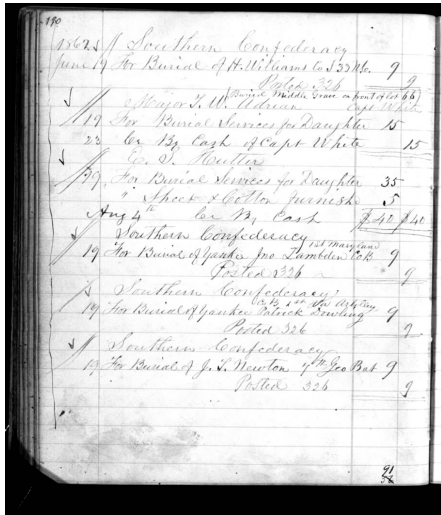 190
1862 Southern Confederacy
June 19 For Burial of H. Williams Co S 33 9
Posted 326 9
Burial Middle Grave on front of lot 66
Major T. W. Adrian Capt White
19 For Burial Services for Daughter 15
23 Cr By Cash of Capt White 15
E. S. Hutter
29 For Burial Services for Daughter 35
" Sheet & Cotton furnish 5
Aug 4th Cr By Cash $40 $40
Southern Confederacy
1st Maryland
19 For Burial of Yankee Jno Lambden Co B 9
Posted 326 9
Southern Confederacy
Co B 1st Artlery
19 For Burial of Yankee Patrick Dowling 9
Posted 326 9
Southern Confederacy
19 For Burial of J. S. Newton 7th Geo Bat 9
Posted 326 9
91